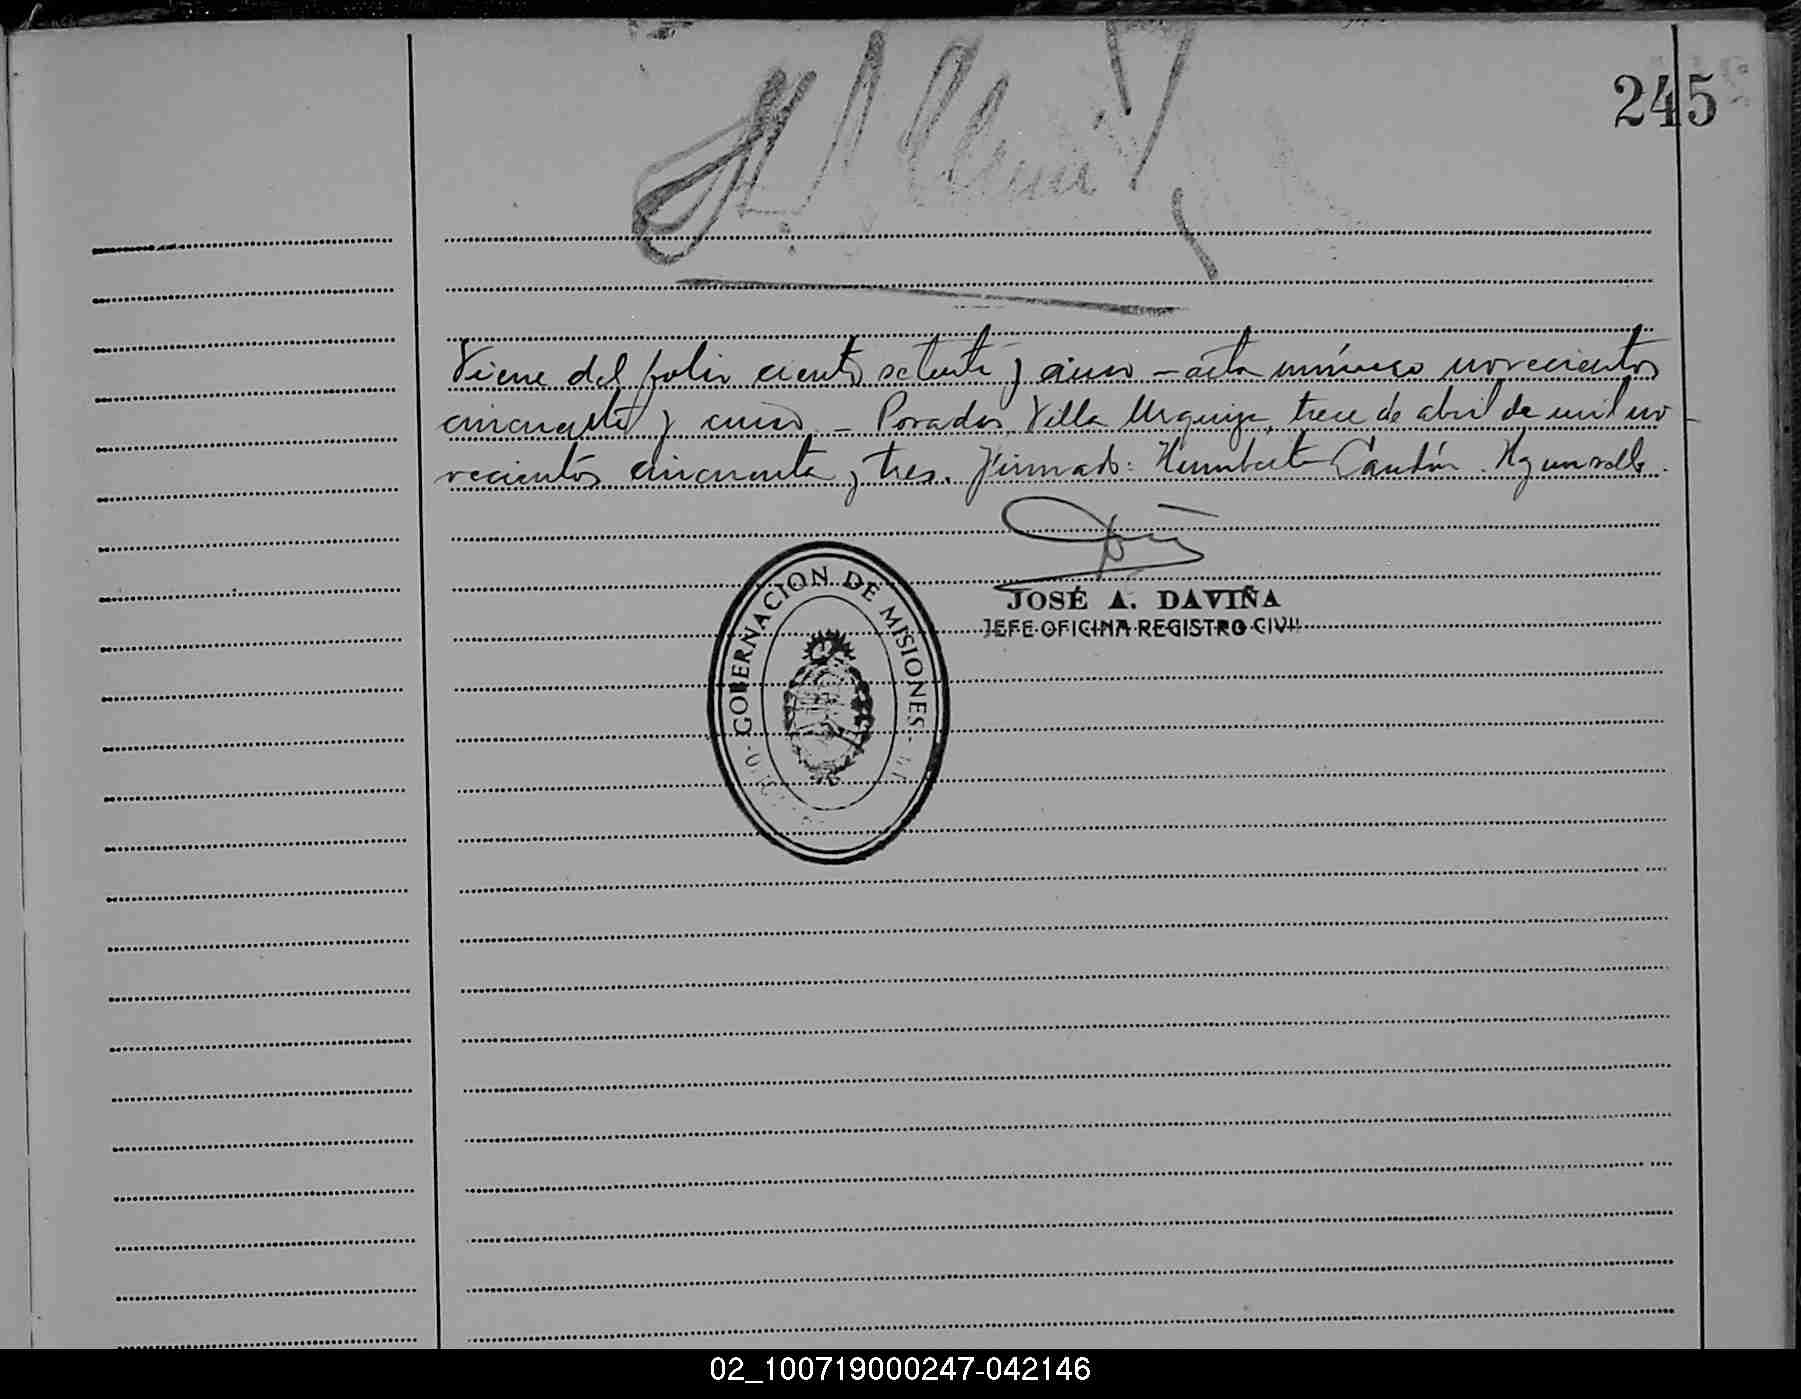 245
Viene del folio ciento setenta y cinco - acta número novecientos
cincuenta y cinco. - Posadas, Villa Urquiza, trece de abril de mil no-
vecientos cincuenta y tres. Firmado: Humberto
JOSÉ A. DAVIÑA
JEFE OFICINA REGISTRO CIVIL
GOBERNACION DE MISIONES
02_100719000247-042146